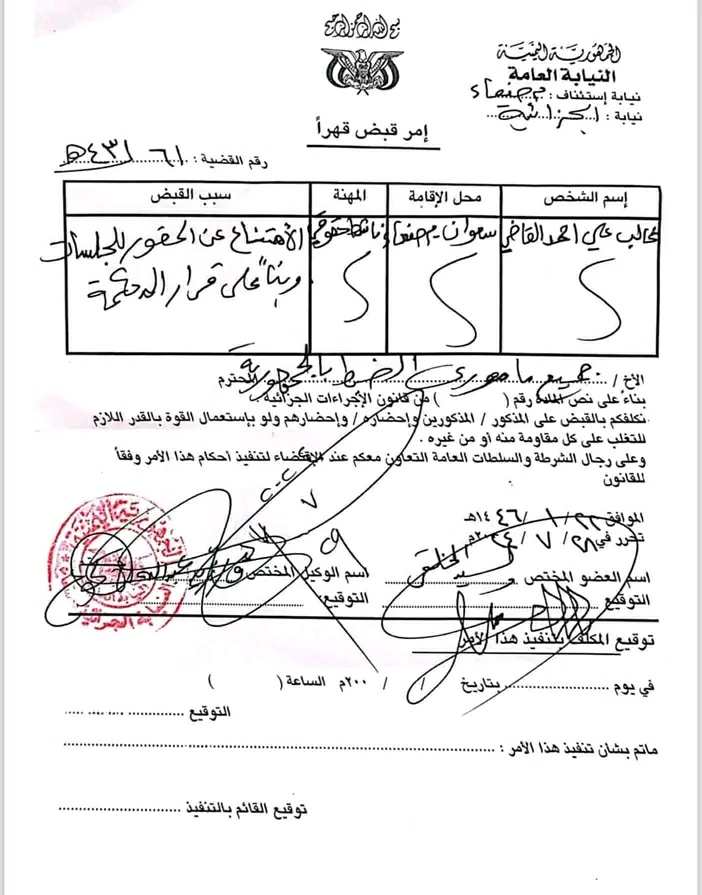 بسم الله الرحمن الرحيم
الجمهورية اليمنية
النيابة العامة
نيابة إستئناف : م صنعاء
نيابة : الجزائية
إمر قبض قهراً
رقم القضية : ٦١
إسم الشخص
محل الإقامة
المهنة
سبب القبض
علي احمد القاضي
سعوان م صنعاء
ناشط حقوقي
الأمتناع عن الحضور للجلسات
وبناً على قرار المحكمة
الأخ / جميع مأموري الضبط بالجمهورية المحترم
بناءً على نص المادة رقم ( ) من قانون الإجراءات الجزائية .
نكلفكم بالقبض على المذكور / المذكورين وإحضاره / وإحضارهم ولو بإستعمال القوة بالقدر اللازم
للتغلب على كل مقاومة منه أو من غيره .
وعلى رجال الشرطة والسلطات العامة التعاون معكم عند الإقتضاء لتنفيذ أحكام هذا الأمر وفقاً
للقانون
الموافق ٢٢ / ١ / ١٤٤٦هـ
تحرر في ٢٨ / ٧ /
اسم العضو المختص
اسم الوكيل المختص
التوقيع
التوقيع:
توقيع المكلف بتنفيذ هذا الأمر
في يوم بتاريخ / / ٢٠٠م الساعة ( )
التوقيع
ماتم بشان تنفيذ هذا الأمر :
توقيع القائم بالتنفيذ